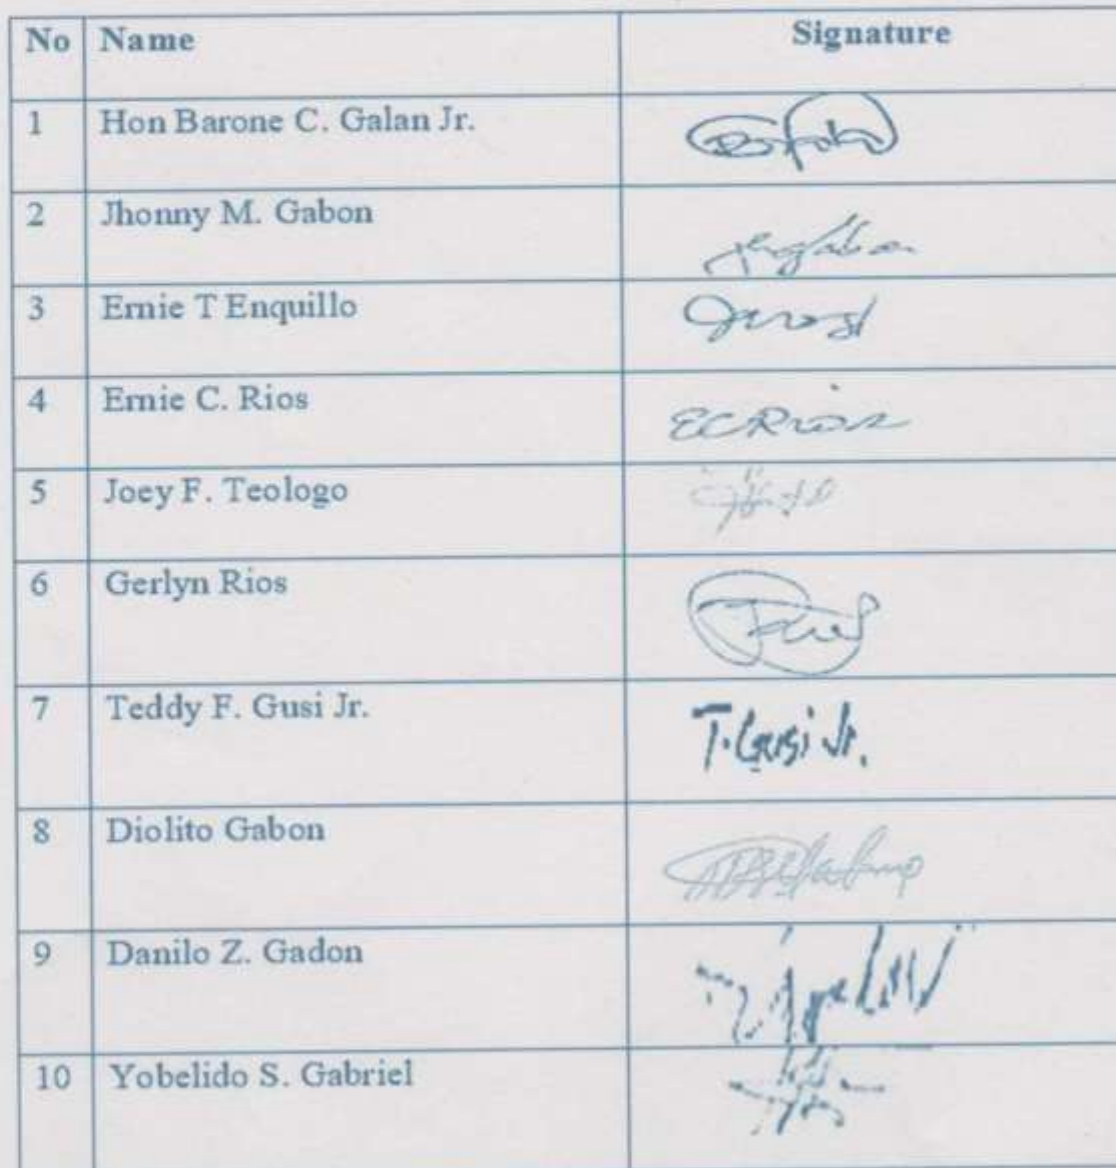 No Name Signature
1 Hon Barone C. Galan Jr.
2 Jhonny M. Gabon
3 Ernie T Enquillo
4 Ernie C. Rios ECRios
5 Joey F. Teologo
6 Gerlyn Rios
7 Teddy F. Gusi Jr. T. Gusi Jr.
8 Diolito Gabon
9 Danilo Z. Gadon
10 Yobelido S. Gabriel